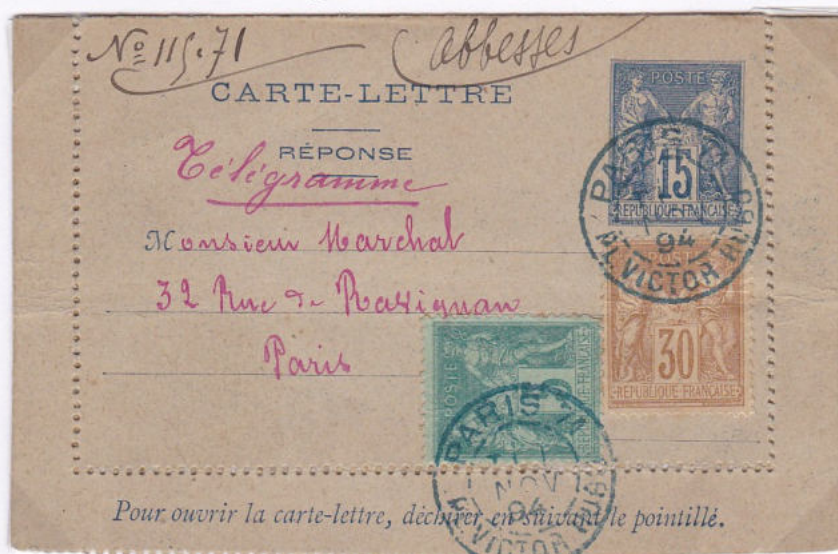 Nº 115.71
Abbesses
CARTE-LETTRE
RÉPONSE
Télégramme
Monsieur Marchal
32 Rue de Ravignan
Paris
POSTE
15
REPUBLIQUE FRANÇAISE
PARIS 71
94
PL. VICTOR HUGO
POSTE
30
REPUBLIQUE FRANÇAISE
POSTES
5
REPUBLIQUE FRANÇAISE
PARIS 71
NOV
94
PL. VICTOR HUGO
Pour ouvrir la carte-lettre, déchirer en suivant le pointillé.